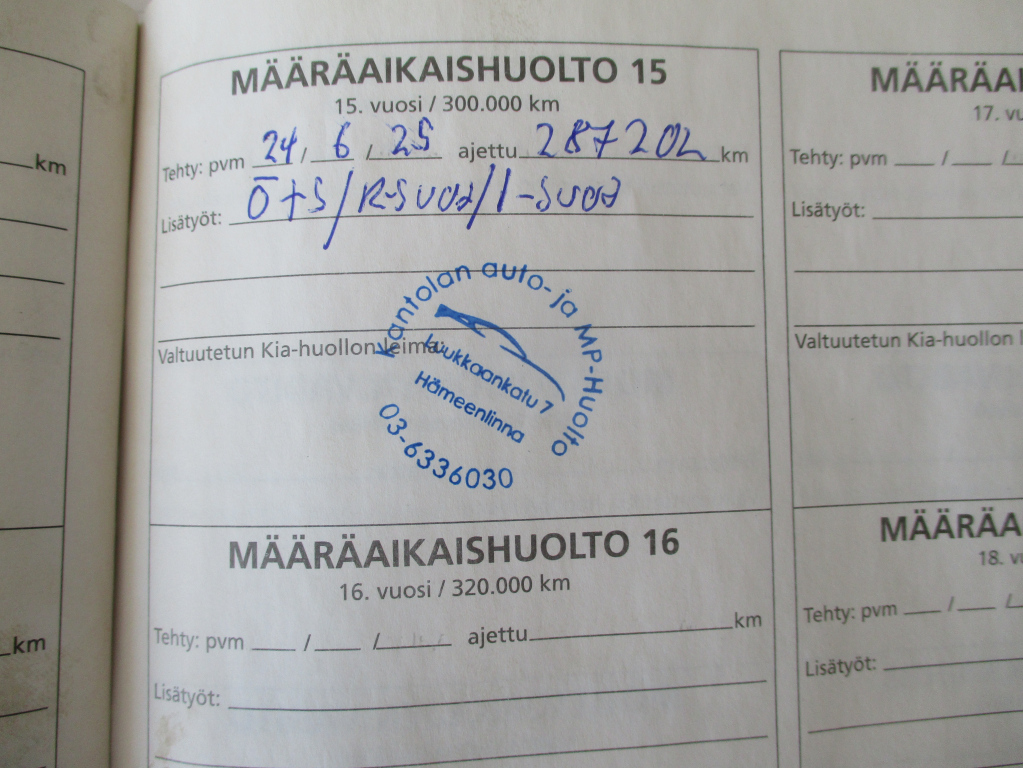 MÄÄRÄAIKAISHUOLTO 15
15. vuosi / 300.000 km
Tehty: pvm 24 / 6 / 25 ajettu 287202 km
Lisätyöt: Ö+S/R-suod/I-suod
Valtuutetun Kia-huollon leima:
Kantolan auto- ja MP-Huolto
Luukkaankatu 7
Hämeenlinna
03-6336030
MÄÄRÄAIKAISHUOLTO 16
16. vuosi / 320.000 km
Tehty: pvm / / ajettu km
Lisätyöt:
km
km
MÄÄRÄAI
17. vu
Tehty: pvm / /
Lisätyöt:
Valtuutetun Kia-huollon
MÄÄRÄA
18. vu
Tehty: pvm / /
Lisätyöt: